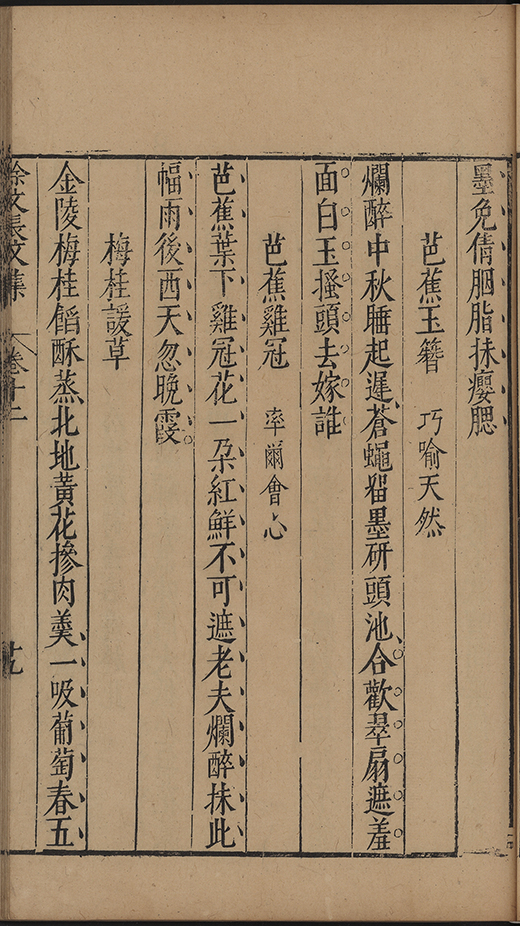 墨免倩胭脂抹癭腮
芭蕉玉簪　巧喻天然
爛醉中秋睡起遲蒼蠅留墨研頭池合歡翠扇遮羞
面白玉搔頭去嫁誰
芭蕉雞冠　率爾會心
芭蕉葉下雞冠花一朵紅鮮不可遮老夫爛醉抹此
幅雨後西天忽晚霞
梅桂諼草
金陵梅桂餡酥蒸北地黃花摻肉羹一吸葡萄春五
徐文長文集　卷十二　十九